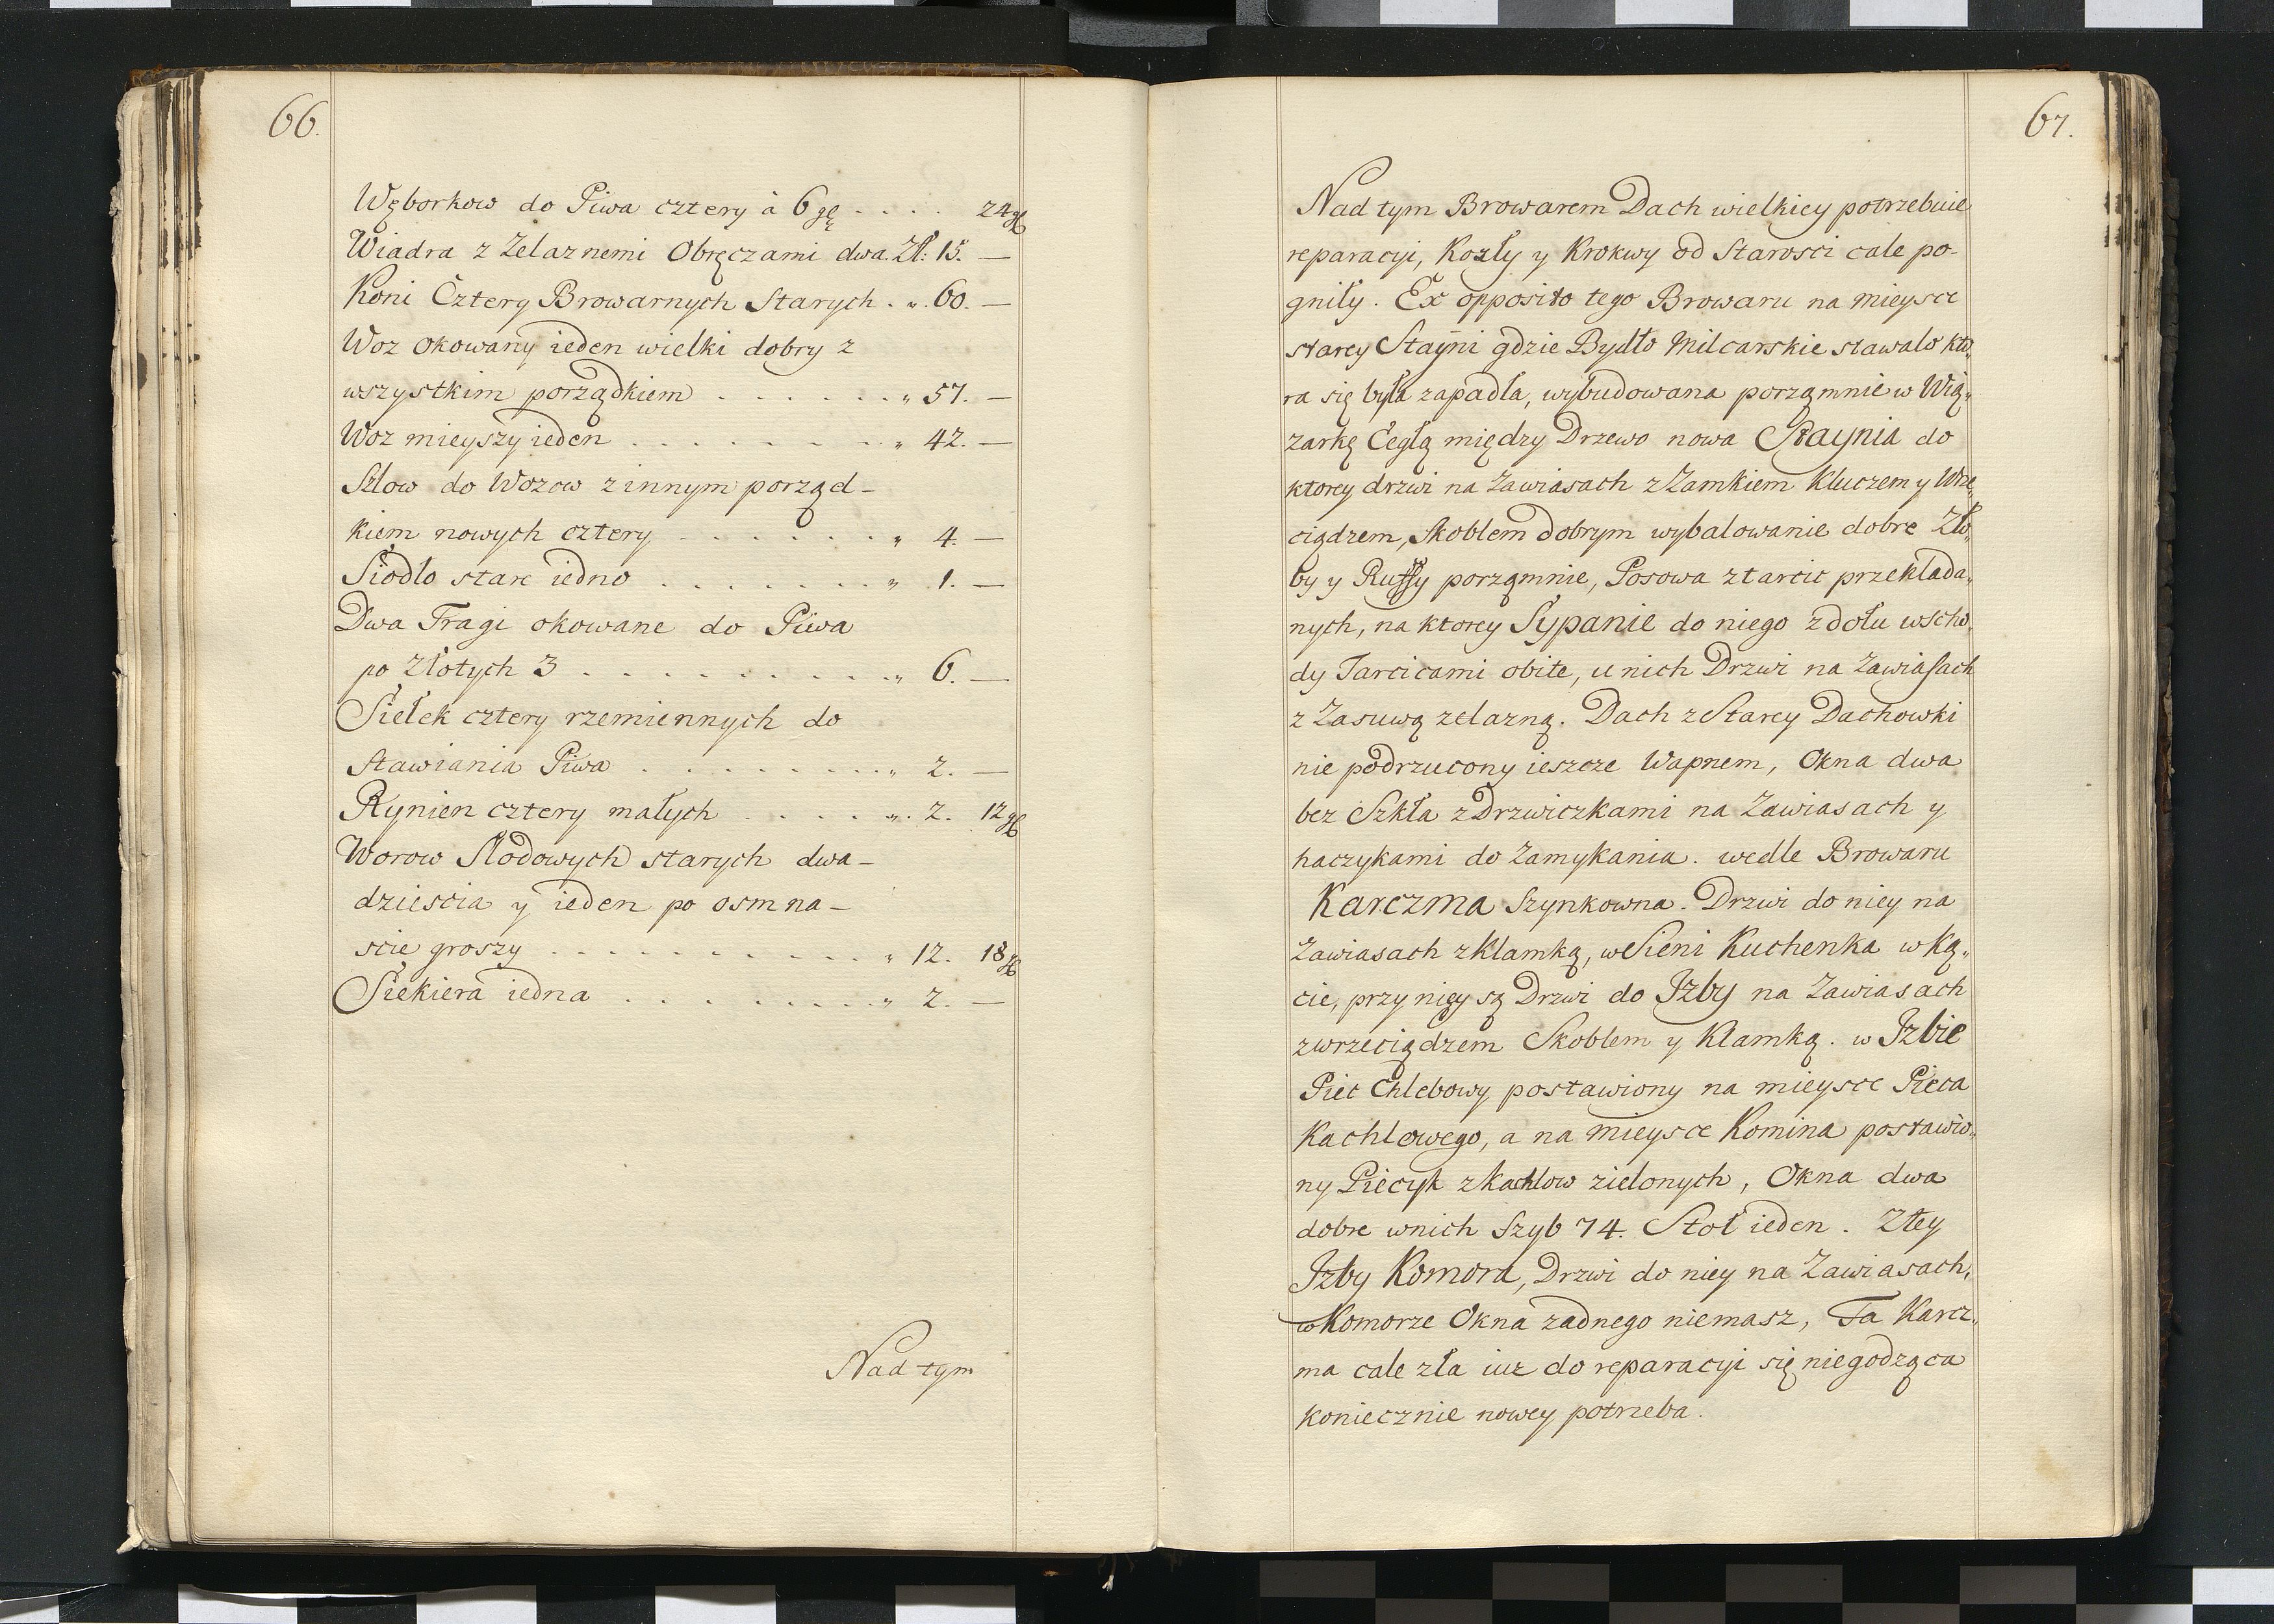 66.
Węborkow do Piwa cztery à 6 gę . . . . 24 gl
Wiadra z Zelaznemi Obręczami dwa. Zł: 15. —
Koni Cztery Browarnych Starych . „ 60. —
Woz okowany ieden wielki dobry z
wszystkim porządkiem . . . . . . „ 57. —
Woz mieyszy ieden . . . . . . . . „ 42. —
Szlow do Wozow z innym porząd-
kiem nowych cztery . . . . . . . „ 4. —
Siodło stare iedno . . . . . . . „ 1. —
Dwa Tragi okowane do Piwa
po Złotych 3 . . . . . . . . . . „ 6. —
Siełek cztery rzemiennych do
stawiania Piwa . . . . . . . . . „ 2. —
Rynien cztery małych . . . . . „ 2. 12 gl
Worow Słodowych starych dwa-
dziescia y ieden po osmna-
scie groszy . . . . . . . . . . . „ 12. 18 gl
Siekiera iedna . . . . . . . . „ 2. —
Nad tym
67.
Nad tym Browarem Dach wielkiey potrzebuie
reparacyi, Kozły y Krokwy od Starosci cale po-
gniły. Ex opposito tego Browaru na mieysce
starey Stayni gdzie Bydło Milcarskie stawało kto„
ra się była zapadła, wybudowana porząmnie w Wią„
zarkę Cegłą między Drzewo nowa Staynia do
ktorey drzwi na Zawiasach z Zamkiem Kluczem y Wrze„
ciądzem, Skoblem dobrym wybalowanie dobre Zło„
by y Ruffy porząmnie, Posowa z tarcic przekłada„
nych, na ktorey Sypanie do niego z dołu wscho„
dy Tarcicami obite, u nich Drzwi na Zawiasach
z Zasuwą zelazną. Dach z Starey Dachowki
nie podrzucony ieszcze Wapnem, Okna dwa
bez Szkła z Drzwiczkami na Zawiasach y
haczykami do Zamykania. wedle Browaru
Karczma Szynkowna. Drzwi do niey na
Zawiasach z Klamką, w Sieni Kuchenka w Ką„
cie, przy niey są Drzwi do Izby na Zawiasach
z wrzeciądzem Skoblem y Klamką. w Izbie
Piec Chlebowy postawiony na mieysce Pieca
Kachlowego, a na mieysce Komina postawio„
ny Piecyk z Kachlow zielonych, Okna dwa
dobre w nich Szyb 74. Stoł ieden. Z tey
Izby Komora, Drzwi do niey na Zawiasach,
w Komorze Okna zadnego niemasz, Ta Karcz„
ma cale zła iuz do reparacyi się niegodząca
koniecznie nowey potrzeba.